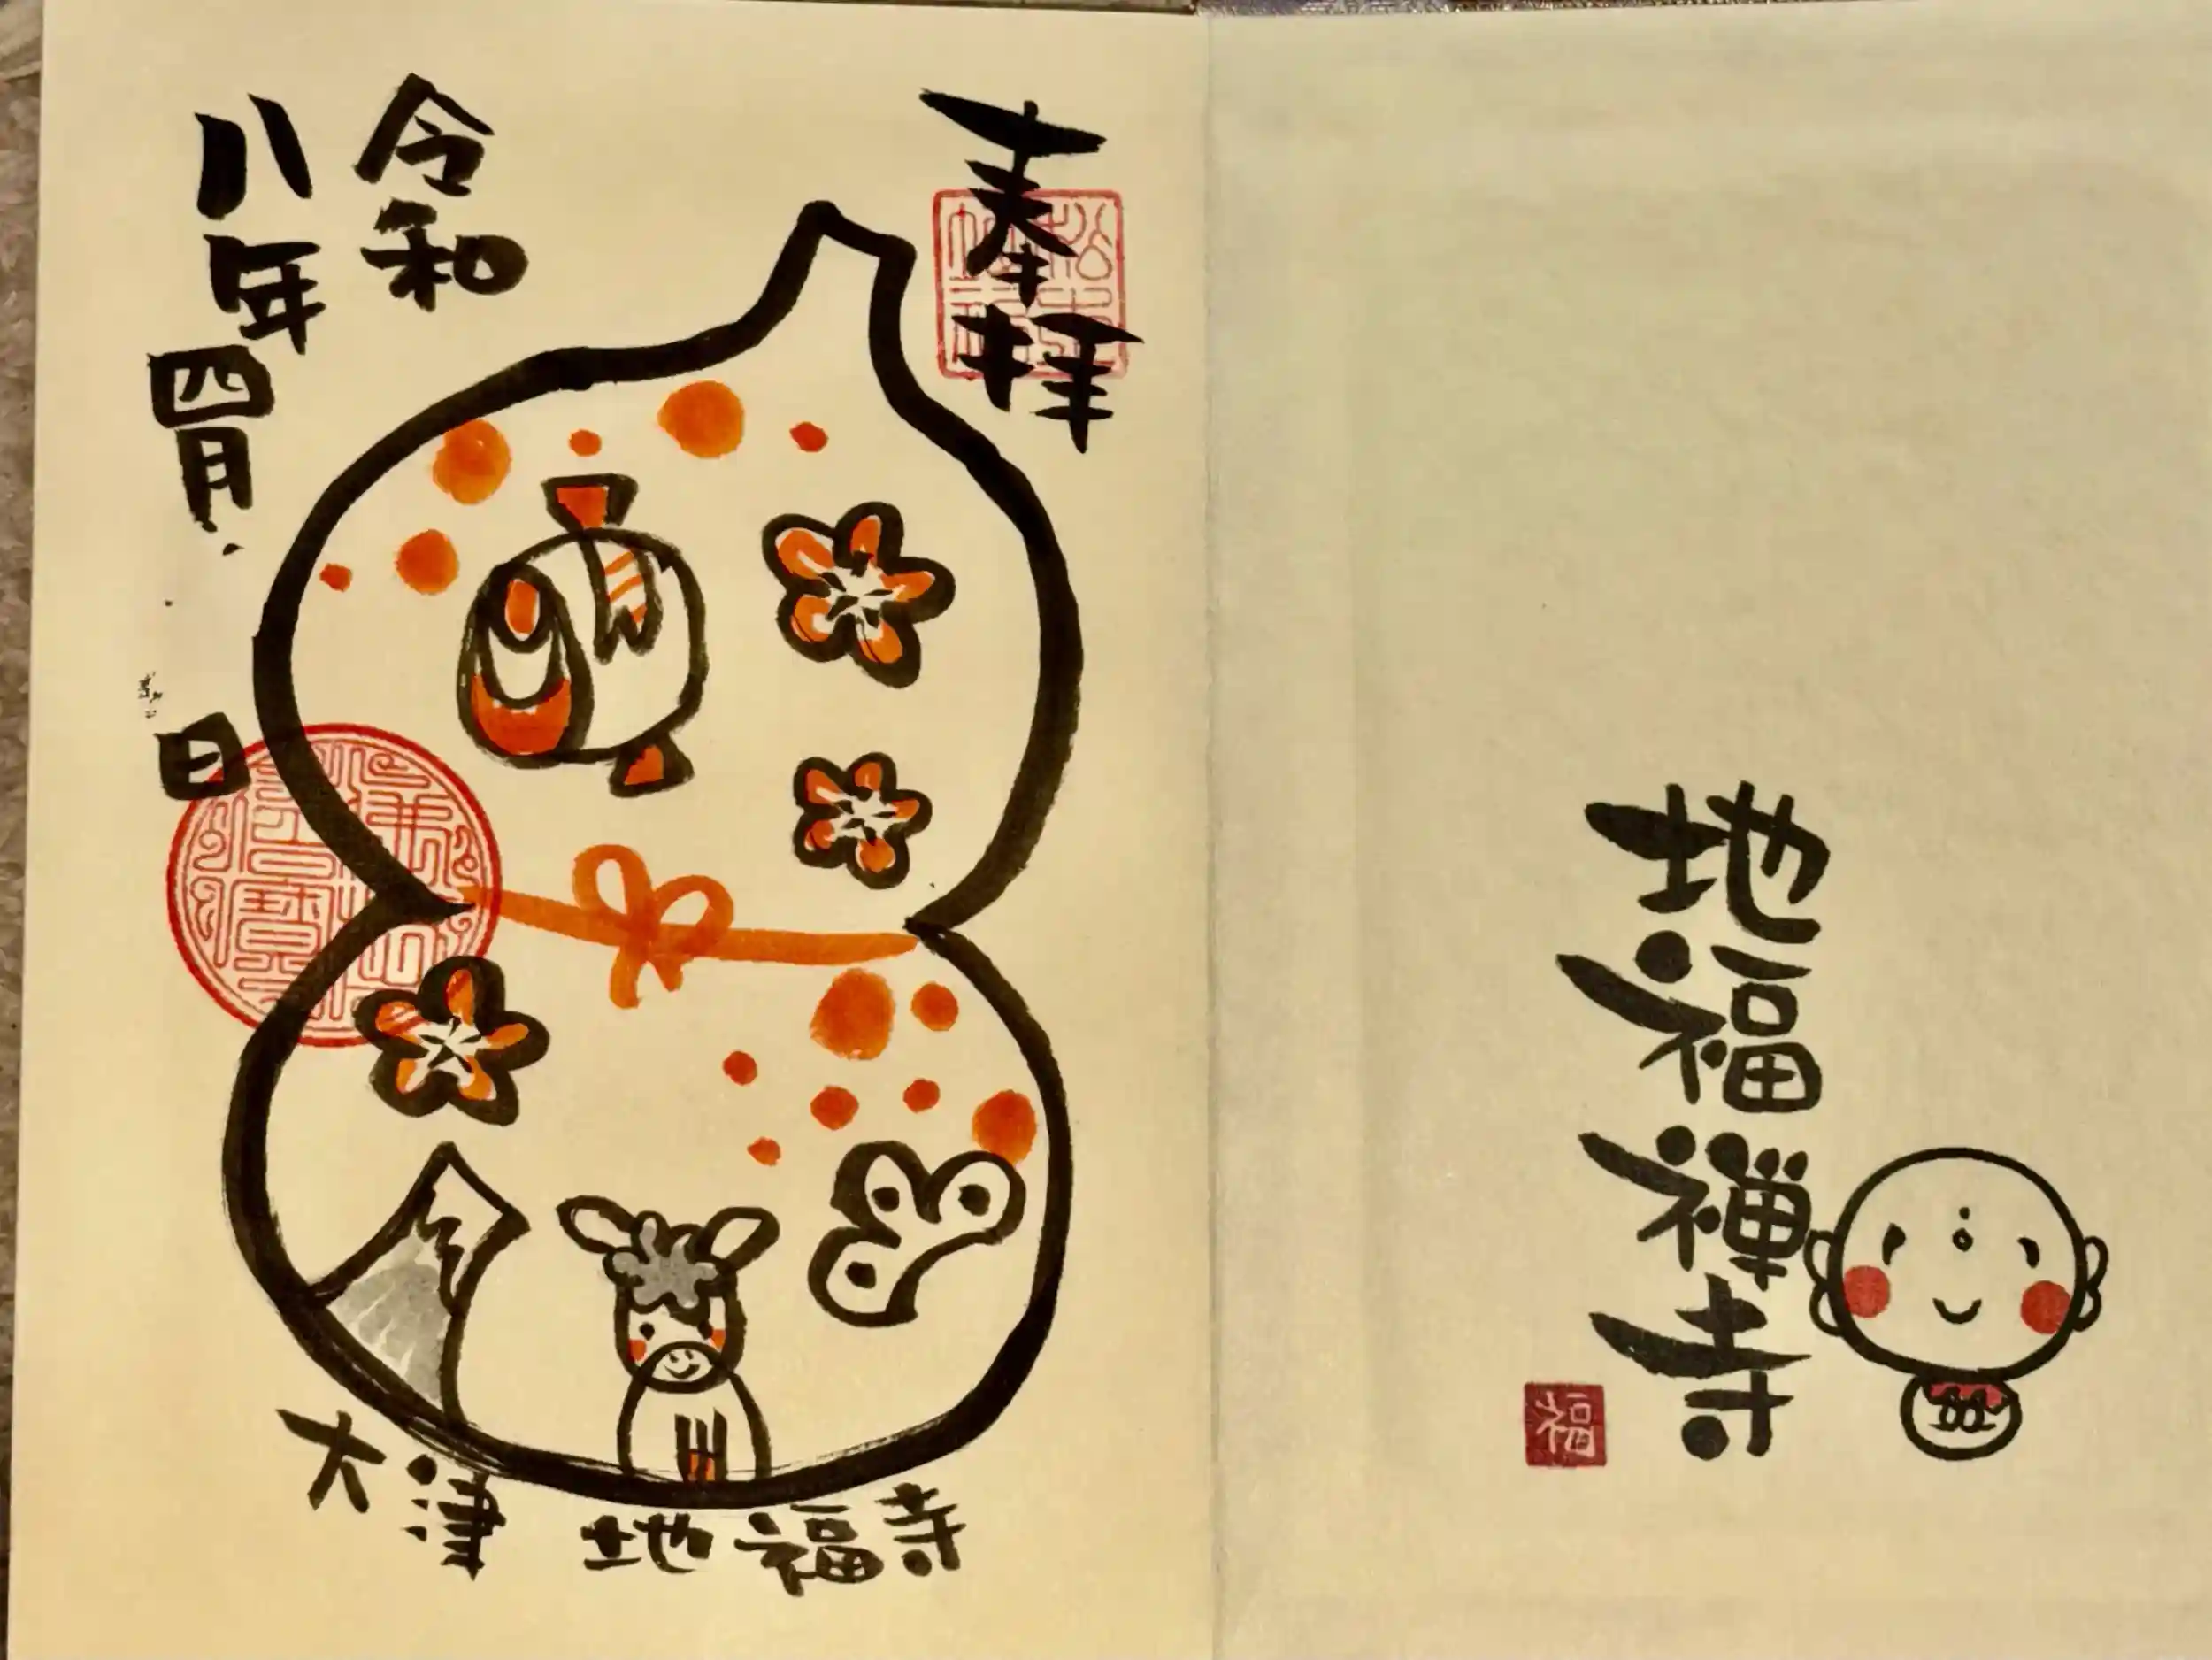 奉拝
令和
八年四月
日
大津 地福寺
地福禅寺
福